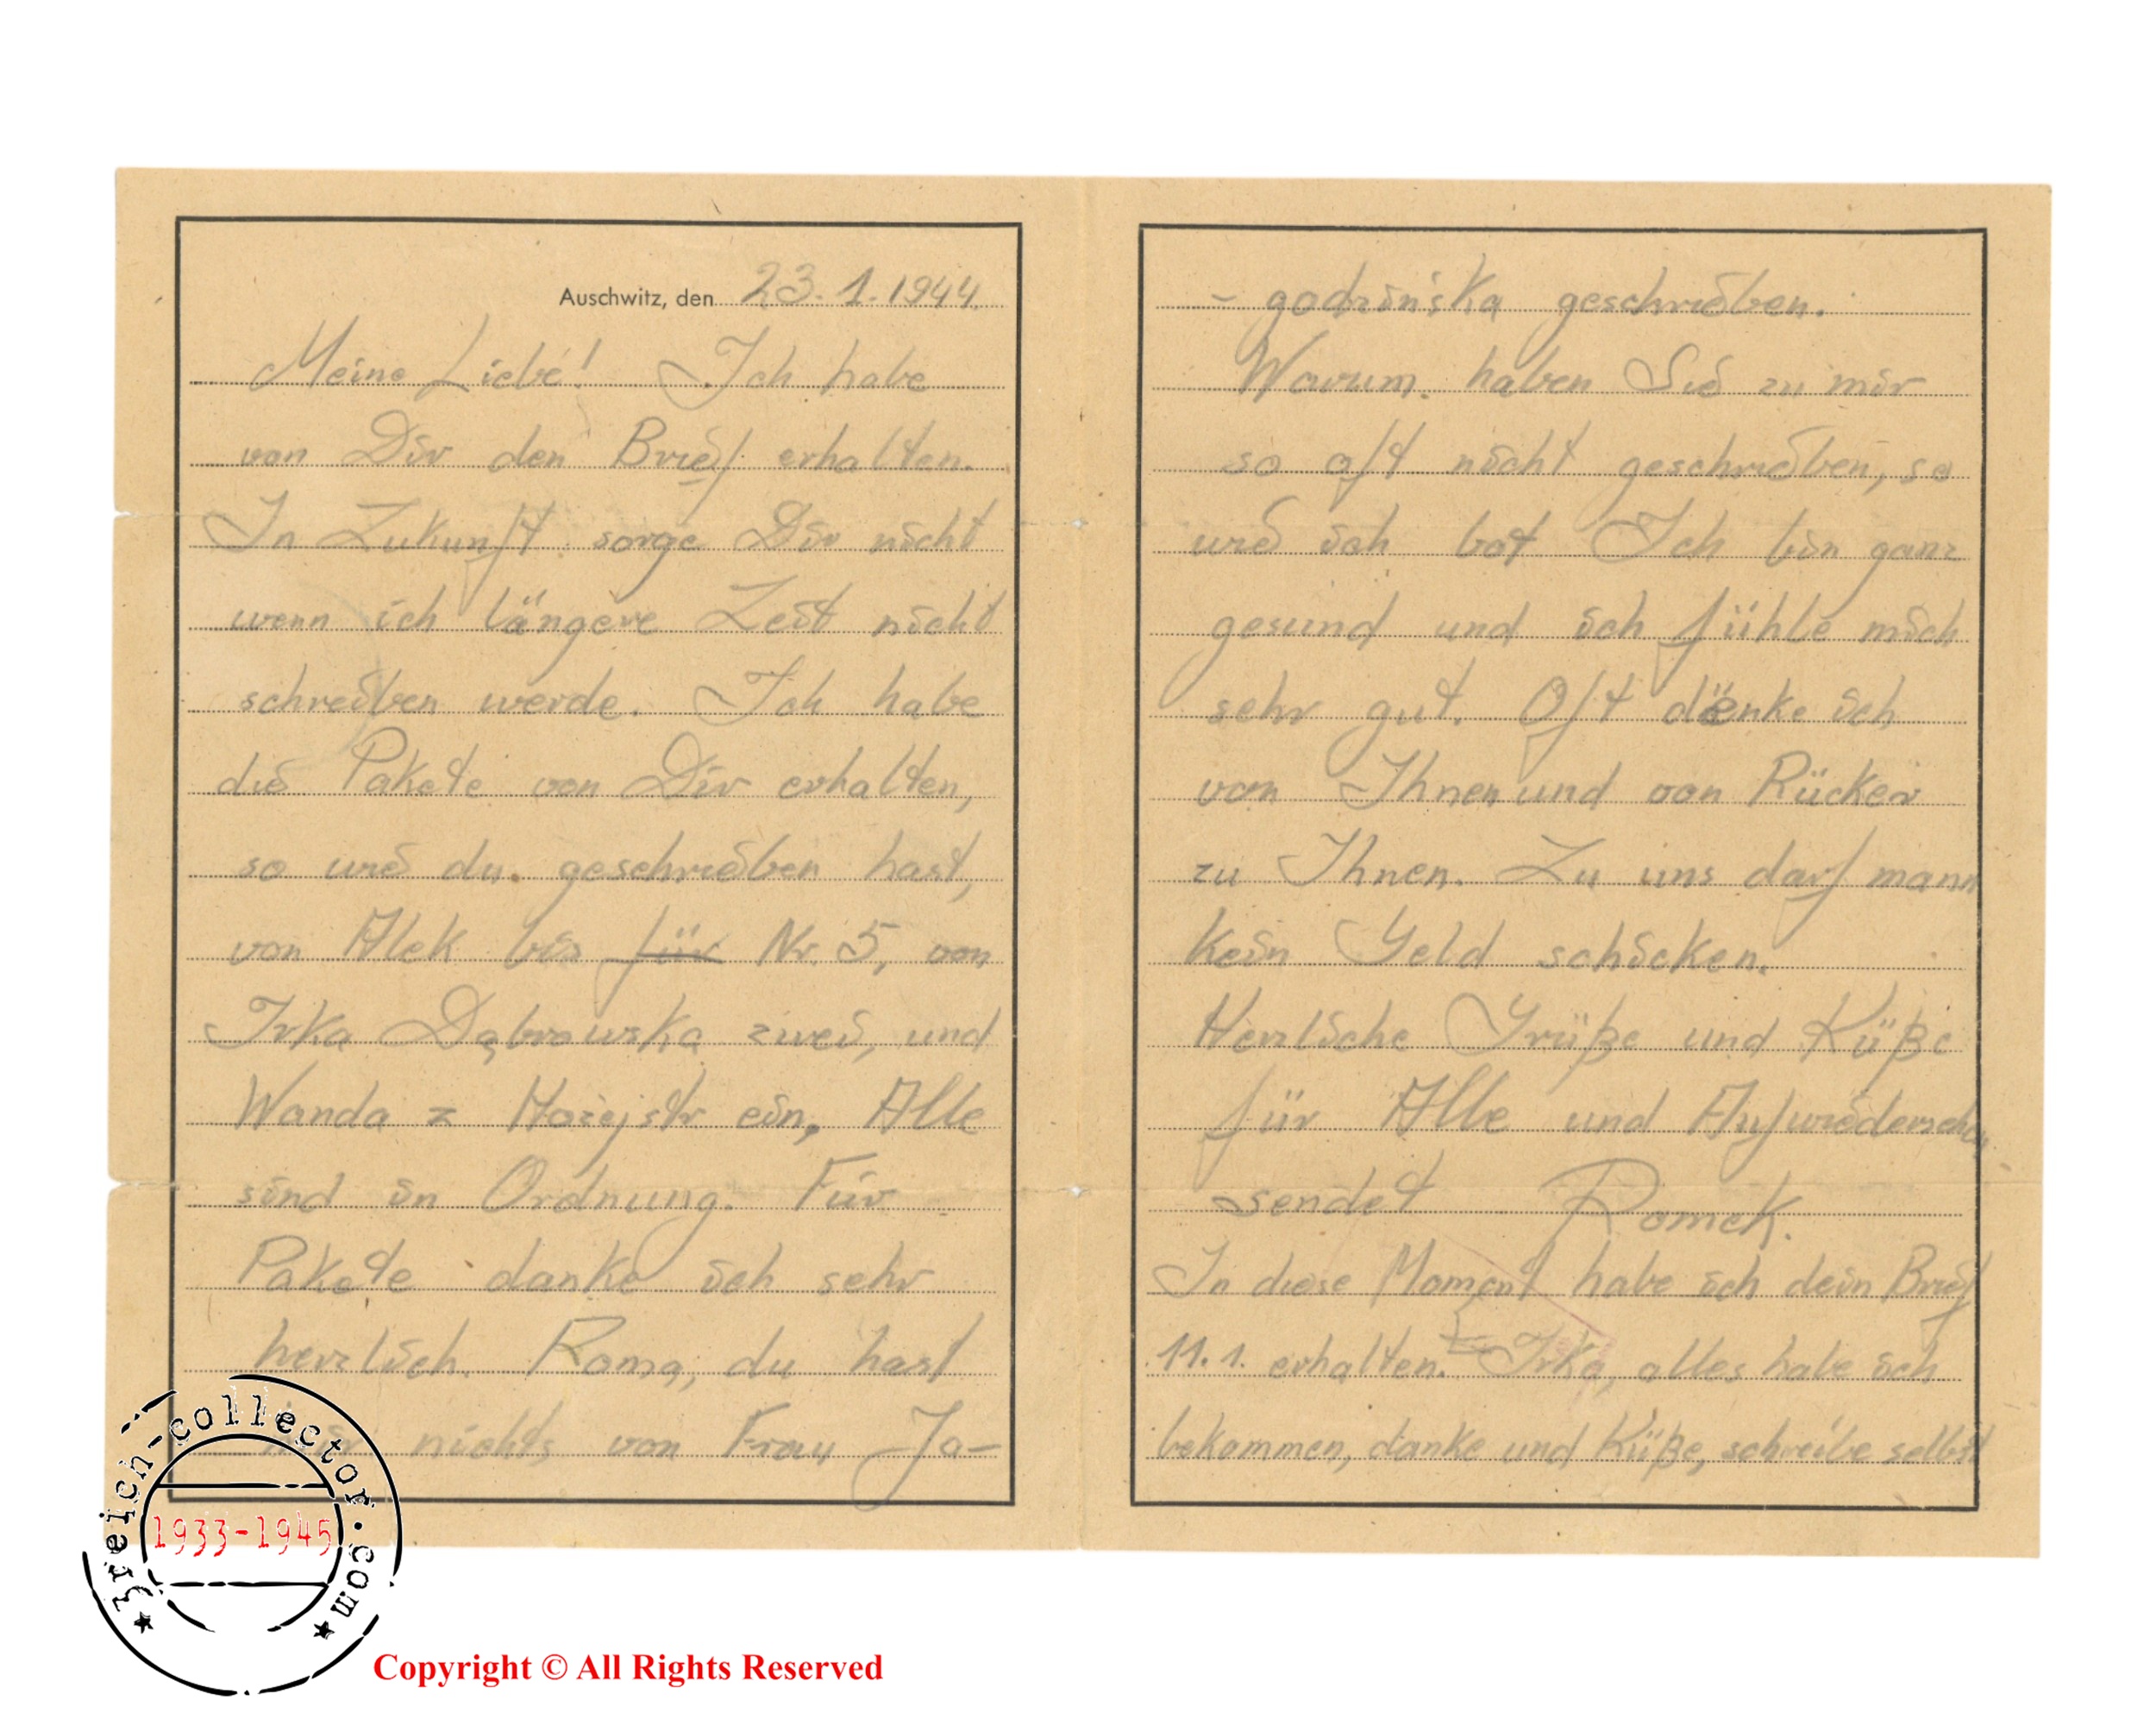 Auschwitz, den 23.1.1944.
Meine Liebe! Ich habe
von Dir den Brief erhalten.
In Zukunft sorge Dir nicht
wenn ich längere Zeit nicht
schreiben werde. Ich habe
die Pakete von Dir erhalten,
so wie du geschrieben hast,
von Alek bis für Nr. 5, von
Irka Dąbrowska zwei, und
Wanda z ein, Alle
sind in Ordnung. Für
Pakete danke ich sehr
herzlich. Roma, du hast
nichts von Frau Ja-
- godzińska geschrieben.
Warum haben Sie zu mir
so oft nicht geschrieben, so
wie ich bat Ich bin ganz
gesund und ich fühle mich
sehr gut. Oft denke ich
von Ihnen und von Rücker
zu Ihnen. Zu uns darf mann
kein Geld schicken.
Herzliche Grüße und Küße
für Alle und Aufwiedersehen
sendet Romek.
In diese Moment habe ich dein Brief
11.1. erhalten. Irka, alles habe ich
bekommen, danke und Küße, schreibe selbst
reich-collector.com
1933-1945
Copyright © All Rights Reserved